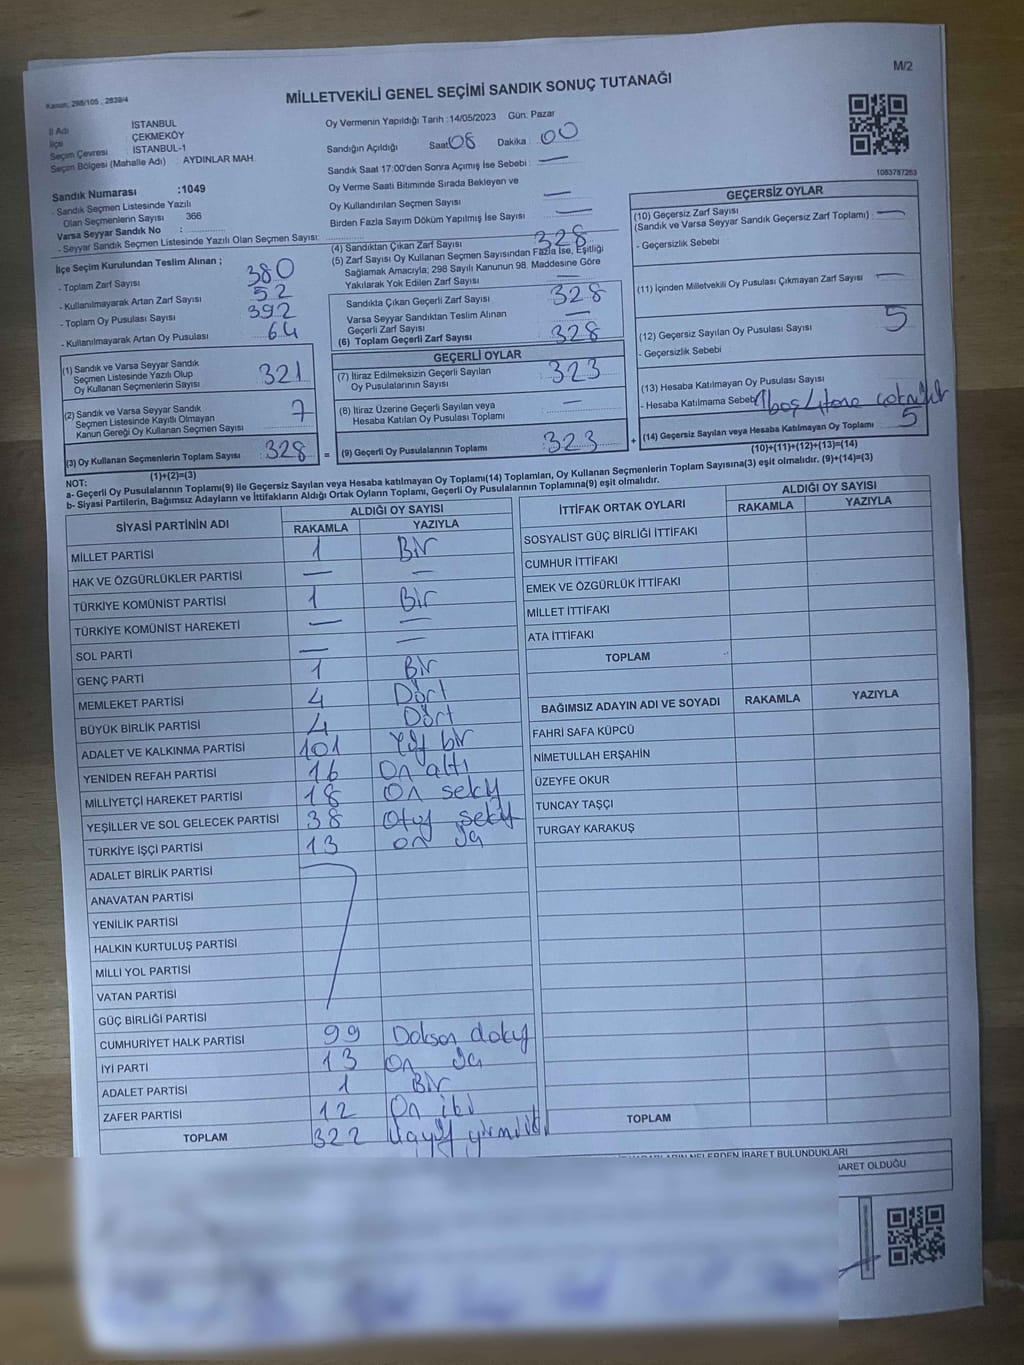 M/2
Kanun, 298/105 , 2839/4
MİLLETVEKİLİ GENEL SEÇİMİ SANDIK SONUÇ TUTANAĞI
İl Adı İSTANBUL
İlçe ÇEKMEKÖY
Seçim Çevresi İSTANBUL-1
Seçim Bölgesi (Mahalle Adı) : AYDINLAR MAH.
Sandık Numarası :1049
- Sandık Seçmen Listesinde Yazılı
Olan Seçmenlerin Sayısı 366
Varsa Seyyar Sandık No :
- Seyyar Sandık Seçmen Listesinde Yazılı Olan Seçmen Sayısı:
Oy Vermenin Yapıldığı Tarih :14/05/2023 Gün: Pazar
Sandığın Açıldığı Saat: 08 Dakika : 00
Sandık Saat 17:00'den Sonra Açımış İse Sebebi : —
Oy Verme Saati Bitiminde Sırada Bekleyen ve
Oy Kullandırılan Seçmen Sayısı —
Birden Fazla Sayım Döküm Yapılmış İse Sayısı —
1083787263
İlçe Seçim Kurulundan Teslim Alınan ;
- Toplam Zarf Sayısı 380
- Kullanılmayarak Artan Zarf Sayısı 52
- Toplam Oy Pusulası Sayısı 392
- Kullanılmayarak Artan Oy Pusulası 64
(1) Sandık ve Varsa Seyyar Sandık
Seçmen Listesinde Yazılı Olup
Oy Kullanan Seçmenlerin Sayısı 321
(2) Sandık ve Varsa Seyyar Sandık
Seçmen Listesinde Kayıtlı Olmayan
Kanun Gereği Oy Kullanan Seçmen Sayısı 7
(3) Oy Kullanan Seçmenlerin Toplam Sayısı 328 =
(1)+(2)=(3)
(4) Sandıktan Çıkan Zarf Sayısı 328
(5) Zarf Sayısı Oy Kullanan Seçmen Sayısından Fazla İse, Eşitliği
Sağlamak Amacıyla; 298 Sayılı Kanunun 98. Maddesine Göre
Yakılarak Yok Edilen Zarf Sayısı —
Sandıkta Çıkan Geçerli Zarf Sayısı 328
Varsa Seyyar Sandıktan Teslim Alınan
Geçerli Zarf Sayısı —
(6) Toplam Geçerli Zarf Sayısı 328
GEÇERLİ OYLAR
(7) İtiraz Edilmeksizin Geçerli Sayılan
Oy Pusulalarının Sayısı 323
(8) İtiraz Üzerine Geçerli Sayılan veya
Hesaba Katılan Oy Pusulası Toplamı —
(9) Geçerli Oy Pusulalarının Toplamı 323 +
GEÇERSİZ OYLAR
(10) Geçersiz Zarf Sayısı
(Sandık ve Varsa Seyyar Sandık Geçersiz Zarf Toplamı) —
- Geçersizlik Sebebi
(11) İçinden Milletvekili Oy Pusulası Çıkmayan Zarf Sayısı —
(12) Geçersiz Sayılan Oy Pusulası Sayısı 5
- Geçersizlik Sebebi
(13) Hesaba Katılmayan Oy Pusulası Sayısı
- Hesaba Katılmama Sebebi
(14) Geçersiz Sayılan veya Hesaba Katılmayan Oy Toplamı 5
(10)+(11)+(12)+(13)=(14)
NOT:
a- Geçerli Oy Pusulalarının Toplamı(9) ile Geçersiz Sayılan veya Hesaba katılmayan Oy Toplamı(14) Toplamları, Oy Kullanan Seçmenlerin Toplam Sayısına(3) eşit olmalıdır. (9)+(14)=(3)
b- Siyasi Partilerin, Bağımsız Adayların ve İttifakların Aldığı Ortak Oyların Toplamı, Geçerli Oy Pusulalarının Toplamına(9) eşit olmalıdır.
SİYASİ PARTİNİN ADI ALDIĞI OY SAYISI
RAKAMLA YAZIYLA
MİLLET PARTİSİ 1 Bir
HAK VE ÖZGÜRLÜKLER PARTİSİ — —
TÜRKİYE KOMÜNİST PARTİSİ 1 Bir
TÜRKİYE KOMÜNİST HAREKETİ — —
SOL PARTİ — —
GENÇ PARTİ 1 Bir
MEMLEKET PARTİSİ 4 Dört
BÜYÜK BİRLİK PARTİSİ 4 Dört
ADALET VE KALKINMA PARTİSİ 101 Yüz bir
YENİDEN REFAH PARTİSİ 16 On altı
MİLLİYETÇİ HAREKET PARTİSİ 18 On sekiz
YEŞİLLER VE SOL GELECEK PARTİSİ 38 Otuz sekiz
TÜRKİYE İŞÇİ PARTİSİ 13 on üç
ADALET BİRLİK PARTİSİ
ANAVATAN PARTİSİ
YENİLİK PARTİSİ
HALKIN KURTULUŞ PARTİSİ
MİLLİ YOL PARTİSİ
VATAN PARTİSİ
GÜÇ BİRLİĞİ PARTİSİ
CUMHURİYET HALK PARTİSİ 99 Doksan dokuz
İYİ PARTİ 13 On üç
ADALET PARTİSİ 1 Bir
ZAFER PARTİSİ 12 On iki
TOPLAM 322 Üçyüz yirmiiki
İTTİFAK ORTAK OYLARI ALDIĞI OY SAYISI
RAKAMLA YAZIYLA
SOSYALİST GÜÇ BİRLİĞİ İTTİFAKI
CUMHUR İTTİFAKI
EMEK VE ÖZGÜRLÜK İTTİFAKI
MİLLET İTTİFAKI
ATA İTTİFAKI
TOPLAM
BAĞIMSIZ ADAYIN ADI VE SOYADI RAKAMLA YAZIYLA
FAHRİ SAFA KÜPCÜ
NİMETULLAH ERŞAHİN
ÜZEYFE OKUR
TUNCAY TAŞÇI
TURGAY KARAKUŞ
TOPLAM
NELERDEN İBARET BULUNDUKLARI
İBARET OLDUĞU